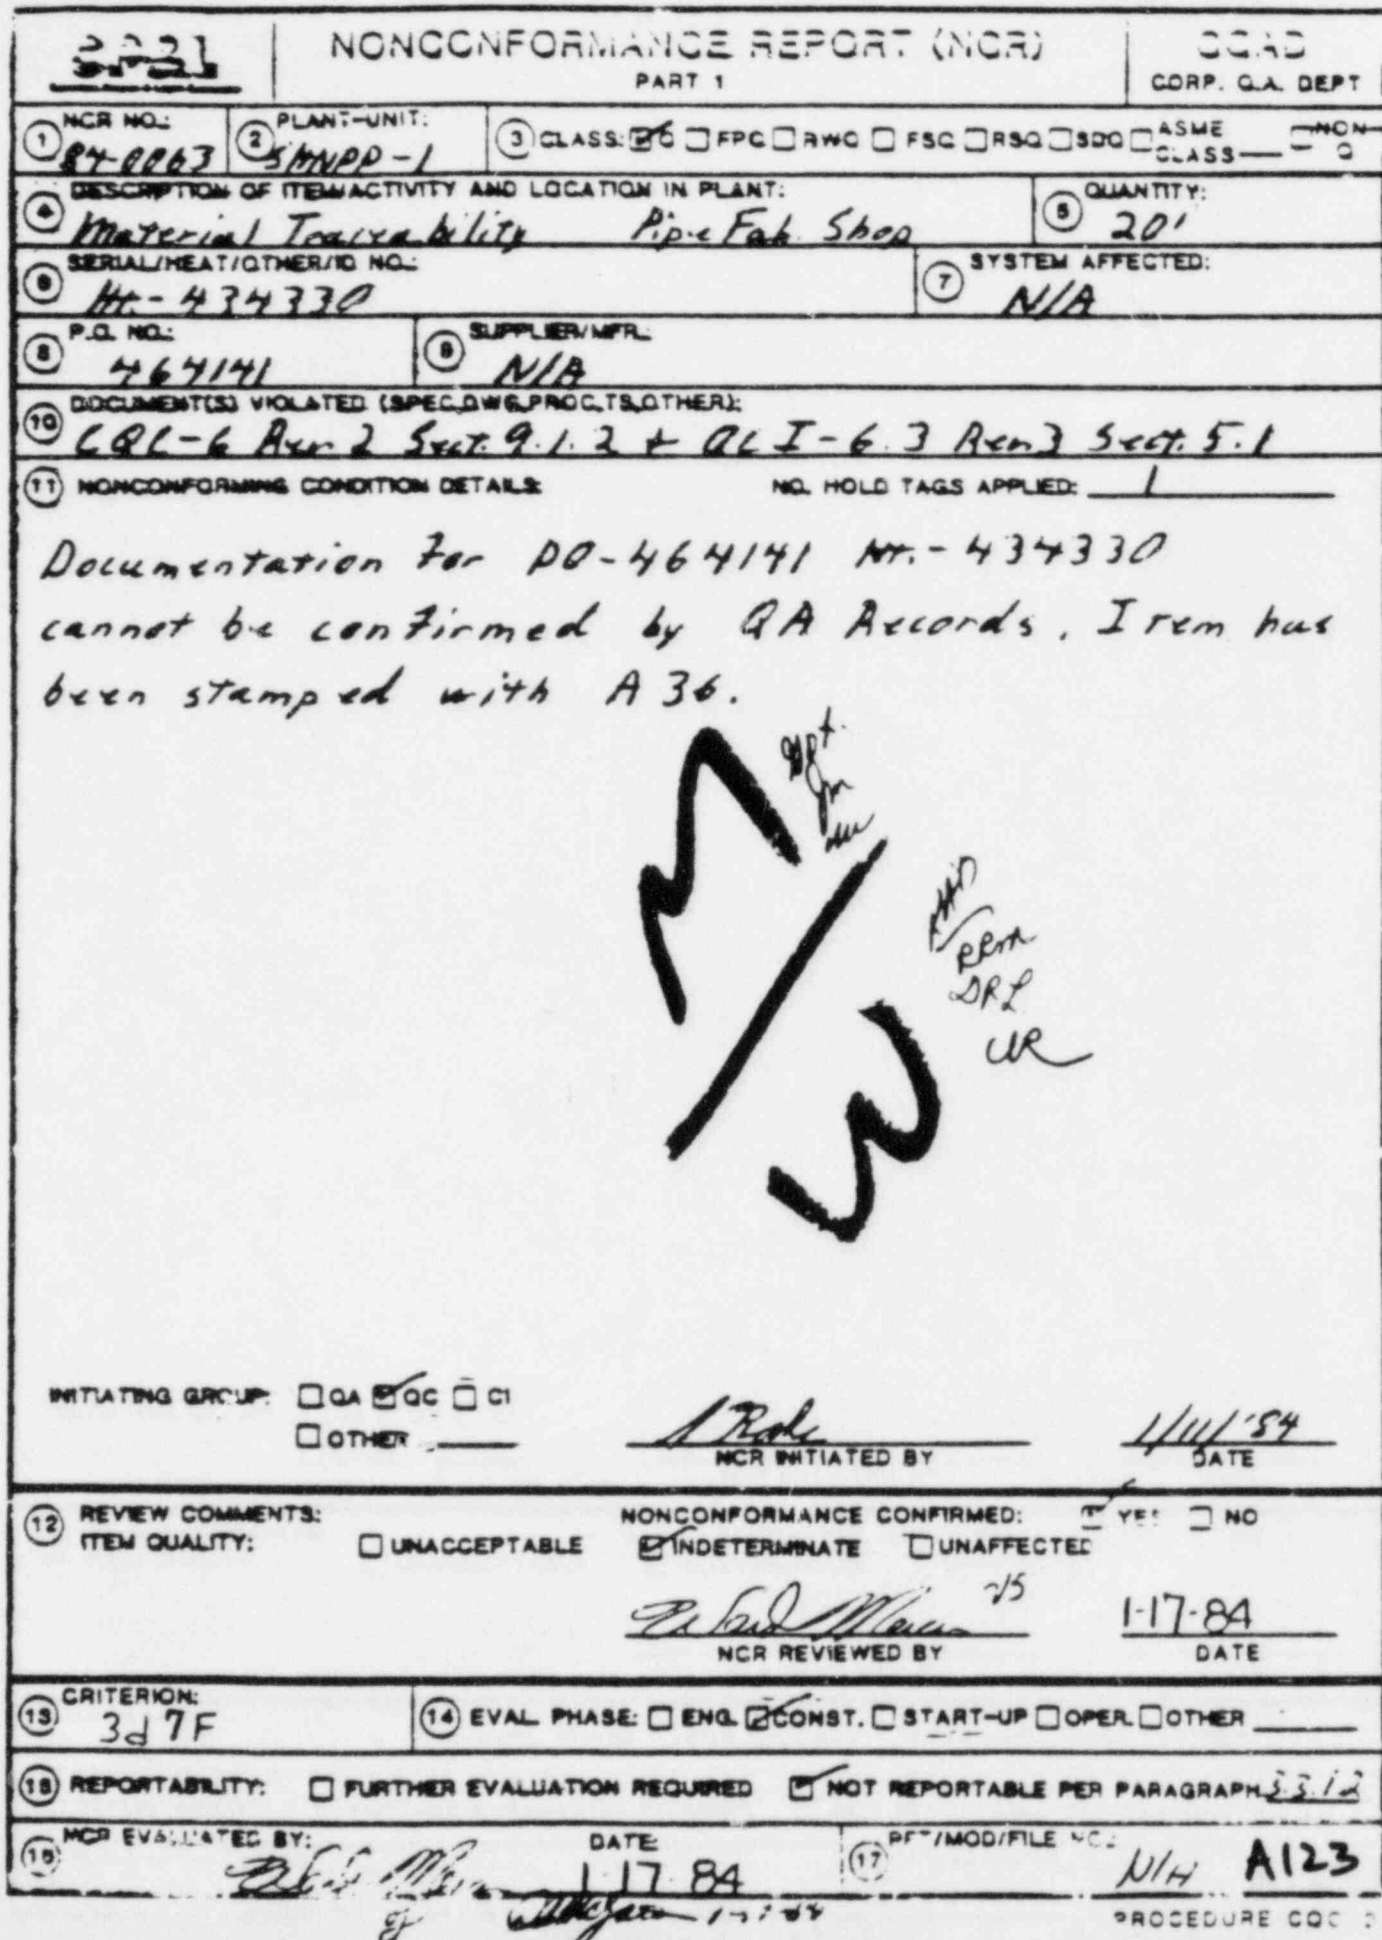 NONCONFORMANCE REPORT (NCR)
PART 1
CORP. Q.A. DEPT
1 NCR NO.: 84-0063
2 PLANT-UNIT: SHNPP-1
3 CLASS: ☑ Q ☐ FPQ ☐ RWQ ☐ FSC ☐ RSQ ☐ SDQ ☐ ASME CLASS ___ ☐ NON-Q
4 DESCRIPTION OF ITEM/ACTIVITY AND LOCATION IN PLANT:
Material Traceability Pipe Fab Shop
5 QUANTITY:
20'
6 SERIAL/HEAT/OTHER/ID NO.:
Ht.-434330
7 SYSTEM AFFECTED:
N/A
8 P.O. NO.:
464141
9 SUPPLIER/MFR.:
N/A
10 DOCUMENT(S) VIOLATED (SPEC,DWG,PROC,TS,OTHER):
CQC-6 Rev 2 Sect. 9.1.2 + QCI-6.3 Rev3 Sect. 5.1
11 NONCONFORMING CONDITION DETAILS: NO. HOLD TAGS APPLIED: 1
Documentation for PO-464141 Ht.-434330
cannot be confirmed by QA Records. Item has
been stamped with A36.
M/W
RRM
DRL
INITIATING GROUP: ☐ QA ☑ QC ☐ CI
☐ OTHER ___
NCR INITIATED BY
1/11/'84
DATE
12 REVIEW COMMENTS: NONCONFORMANCE CONFIRMED: ☑ YES ☐ NO
ITEM QUALITY: ☐ UNACCEPTABLE ☑ INDETERMINATE ☐ UNAFFECTED
NCR REVIEWED BY
1-17-84
DATE
13 CRITERION:
3d 7F
14 EVAL. PHASE: ☐ ENG. ☑ CONST. ☐ START-UP ☐ OPER. ☐ OTHER ___
15 REPORTABILITY: ☐ FURTHER EVALUATION REQUIRED ☑ NOT REPORTABLE PER PARAGRAPH
16 NCR EVALUATED BY: DATE:
1-17-84
17 PFT/MOD/FILE NO.:
N/A A123
PROCEDURE CQC